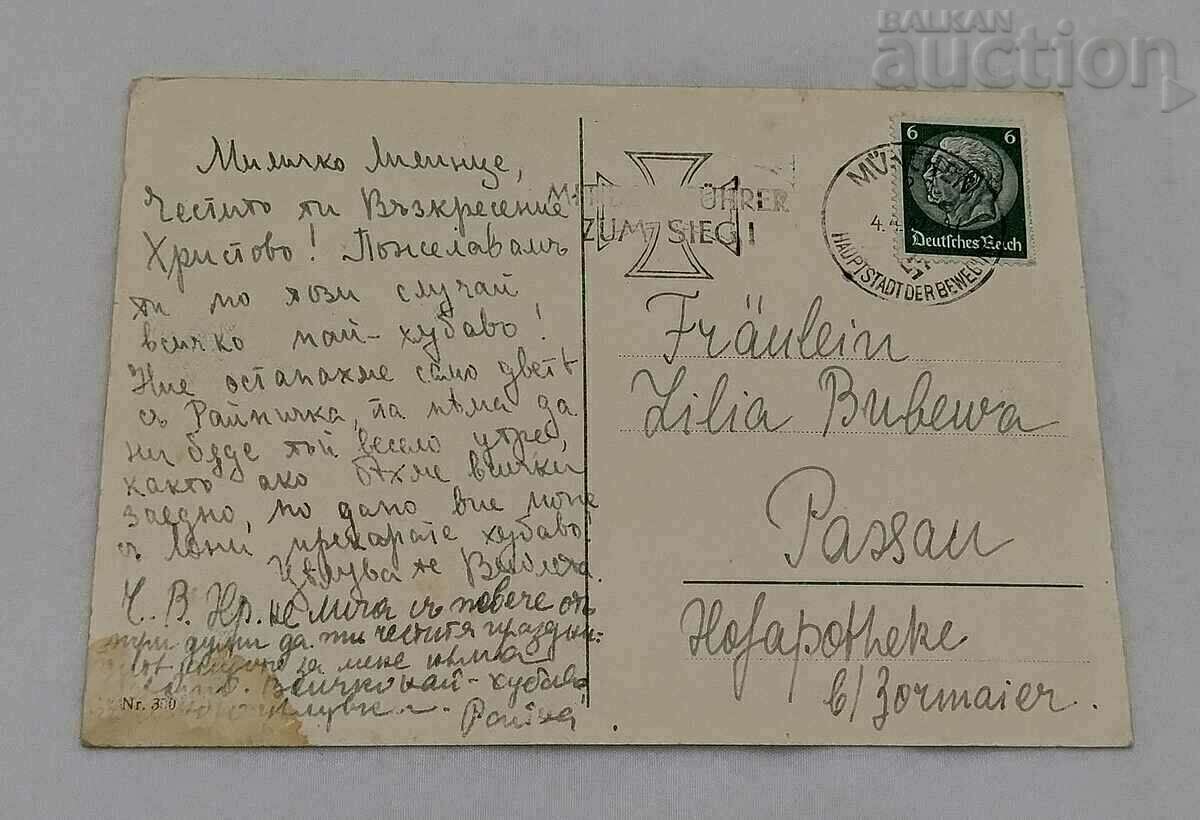 BALKAN
auction
Миличко Лилинце,
Честито ти Възкресение
Христово! Пожелавамъ
ти по този случай
всичко най-хубаво!
Ние останахме само дветѣ
съ Райничка, та нѣма да
ни бѫде тъй весело утре,
както ако бѣхме всички
заедно, но дано вие поне
съ Лони прекарате хубаво!
Цѣлува те
Ч. В. Хр. не мога съ повече отъ
три думи да ти честитя праздни-
за мене нѣма
Всичко най-хубаво
Райна
Nr. 300
MIT FÜHRER
ZUM SIEG!
6 6
Deutsches Reich
MÜ
4.4
HAUPTSTADT DER BEWEG
Fräulein
Lilia Bubewa
Passau
Hofapotheke
b/ Zormaier.